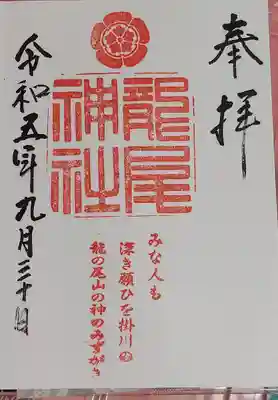 奉拝
龍尾神社
みな人も
深き願ひを掛川の
龍の尾山の神のみずがき
令和五年九月三十日